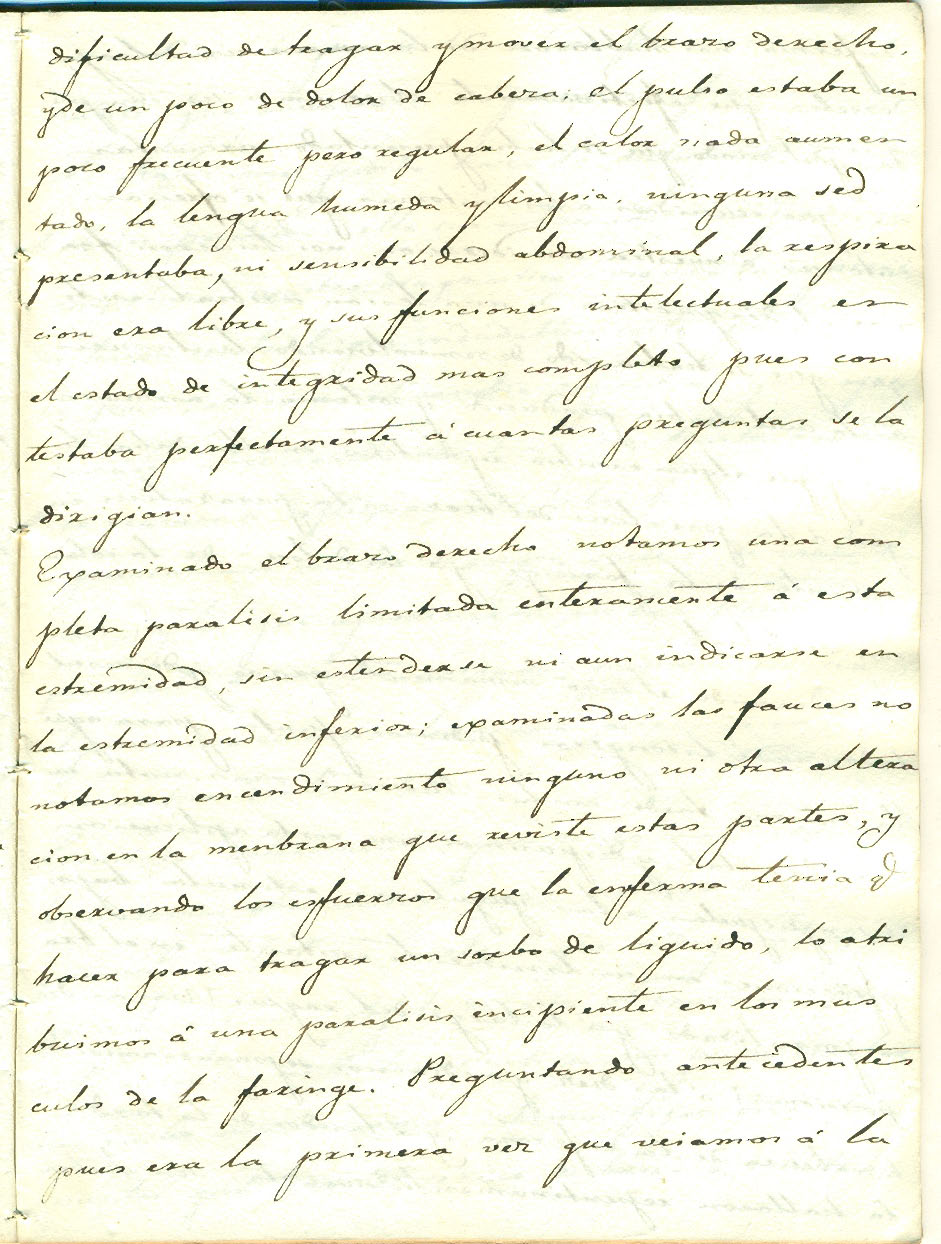 dificultad de tragar y mover el brazo derecho,
y de un poco de dolor de cabeza; el pulso estaba un
poco frecuente pero regular, el calor nada aumen
tado, la lengua humeda y limpia, ninguna sed
presentaba, ni sensibilidad abdominal, la respira
cion era libre, y sus funciones intelectuales en
el estado de integridad mas completo pues con
testaba perfectamente á cuantas preguntas se la
dirigian.
Examinado el brazo derecho notamos una com
pleta paralisis limitada enteramente á esta
estremidad, sin estenderse ni aun indicarse en
la estremidad inferior; examinadas las fauces no
notamos encendimiento ninguno ni otra altera
cion en la menbrana que reviste estas partes, y
observando los esfuerzos que la enferma tenia qe
hacer para tragar un sorbo de liquido, lo atri
buimos á una paralisis incipiente en los mus
culos de la faringe. Preguntando antecedentes
pues era la primera vez que veiamos á la